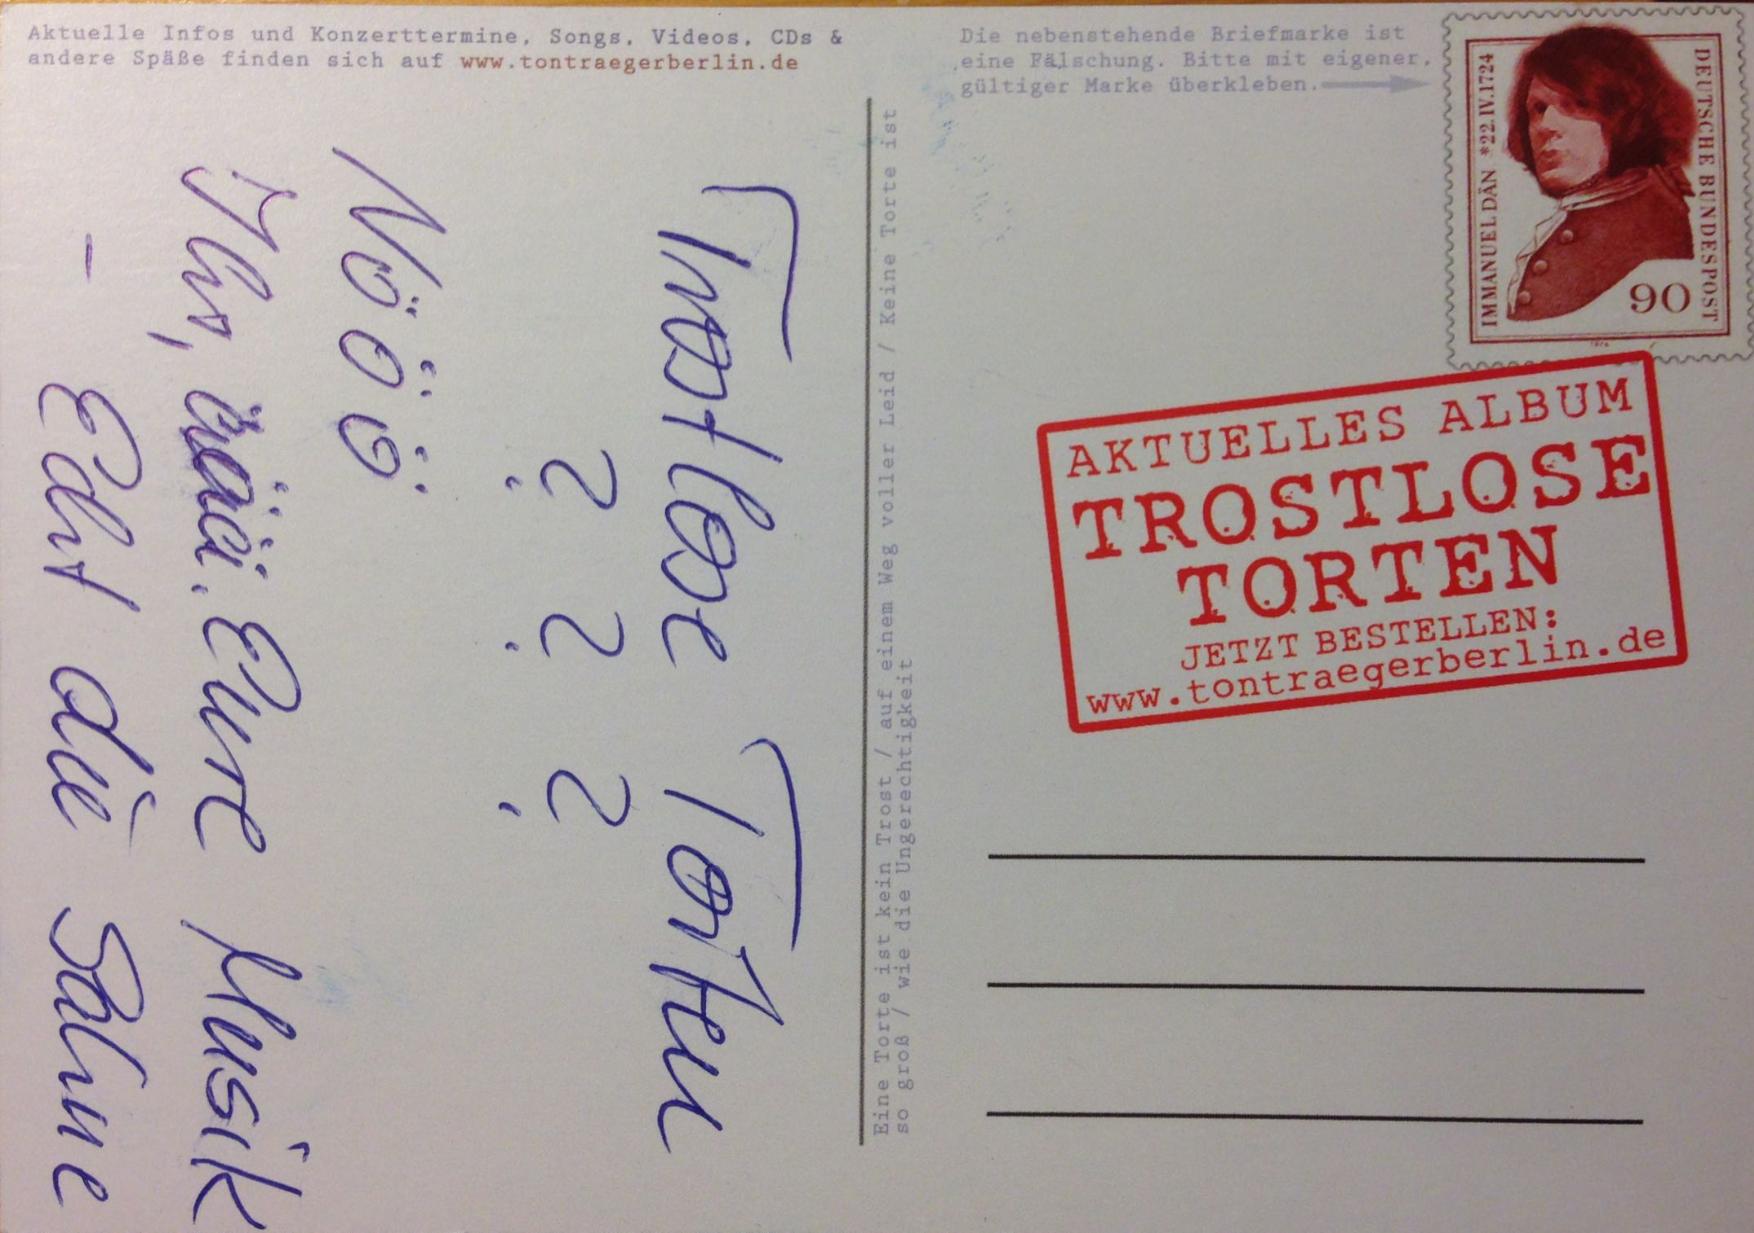 Aktuelle Infos und Konzerttermine, Songs, Videos, CDs &
andere Späße finden sich auf www.tontraegerberlin.de
Trostlose Torten
? ? ?
Nööö
Ihr, Eure Musik
- Echt die Sahne
Eine Torte ist kein Trost / auf einem Weg voller Leid / Keine Torte ist
so groß / wie die Ungerechtigkeit
Die nebenstehende Briefmarke ist
eine Fälschung. Bitte mit eigener,
gültiger Marke überkleben.
IMMANUEL DÄN *22.IV.1724
DEUTSCHE BUNDESPOST
90
AKTUELLES ALBUM
TROSTLOSE
TORTEN
JETZT BESTELLEN:
www.tontraegerberlin.de